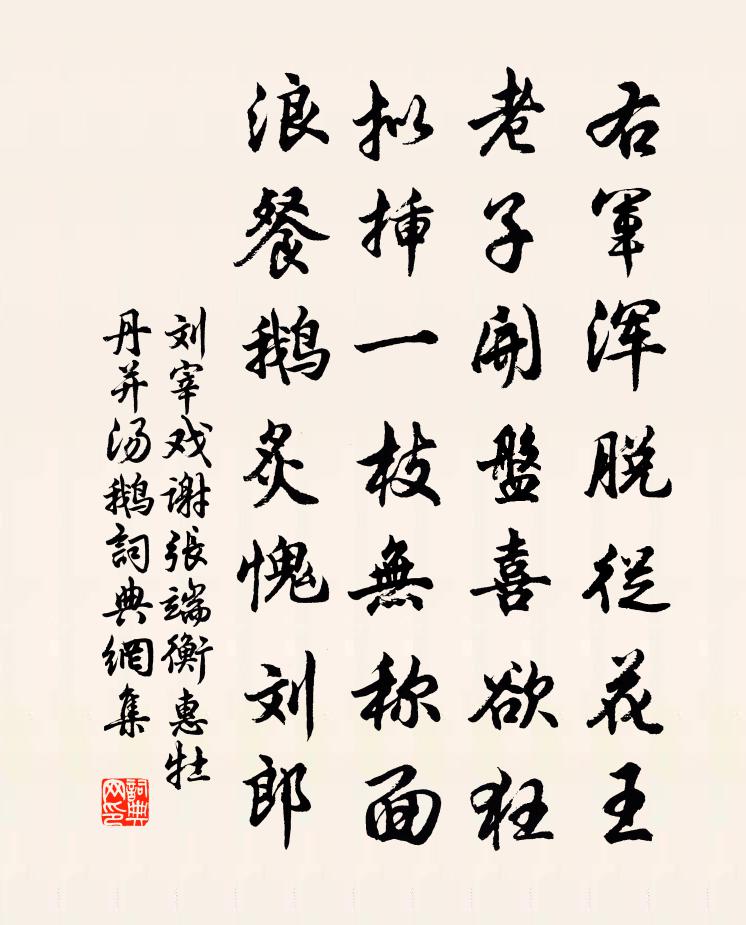 右軍浑脱從花王
老子開盤喜欲狂
拟挿一枝無称面
浪餐鹅炙愧刘郎
刘宰戏谢張端衡惠牡
丹并汤鹅詞典網集
詞典网印